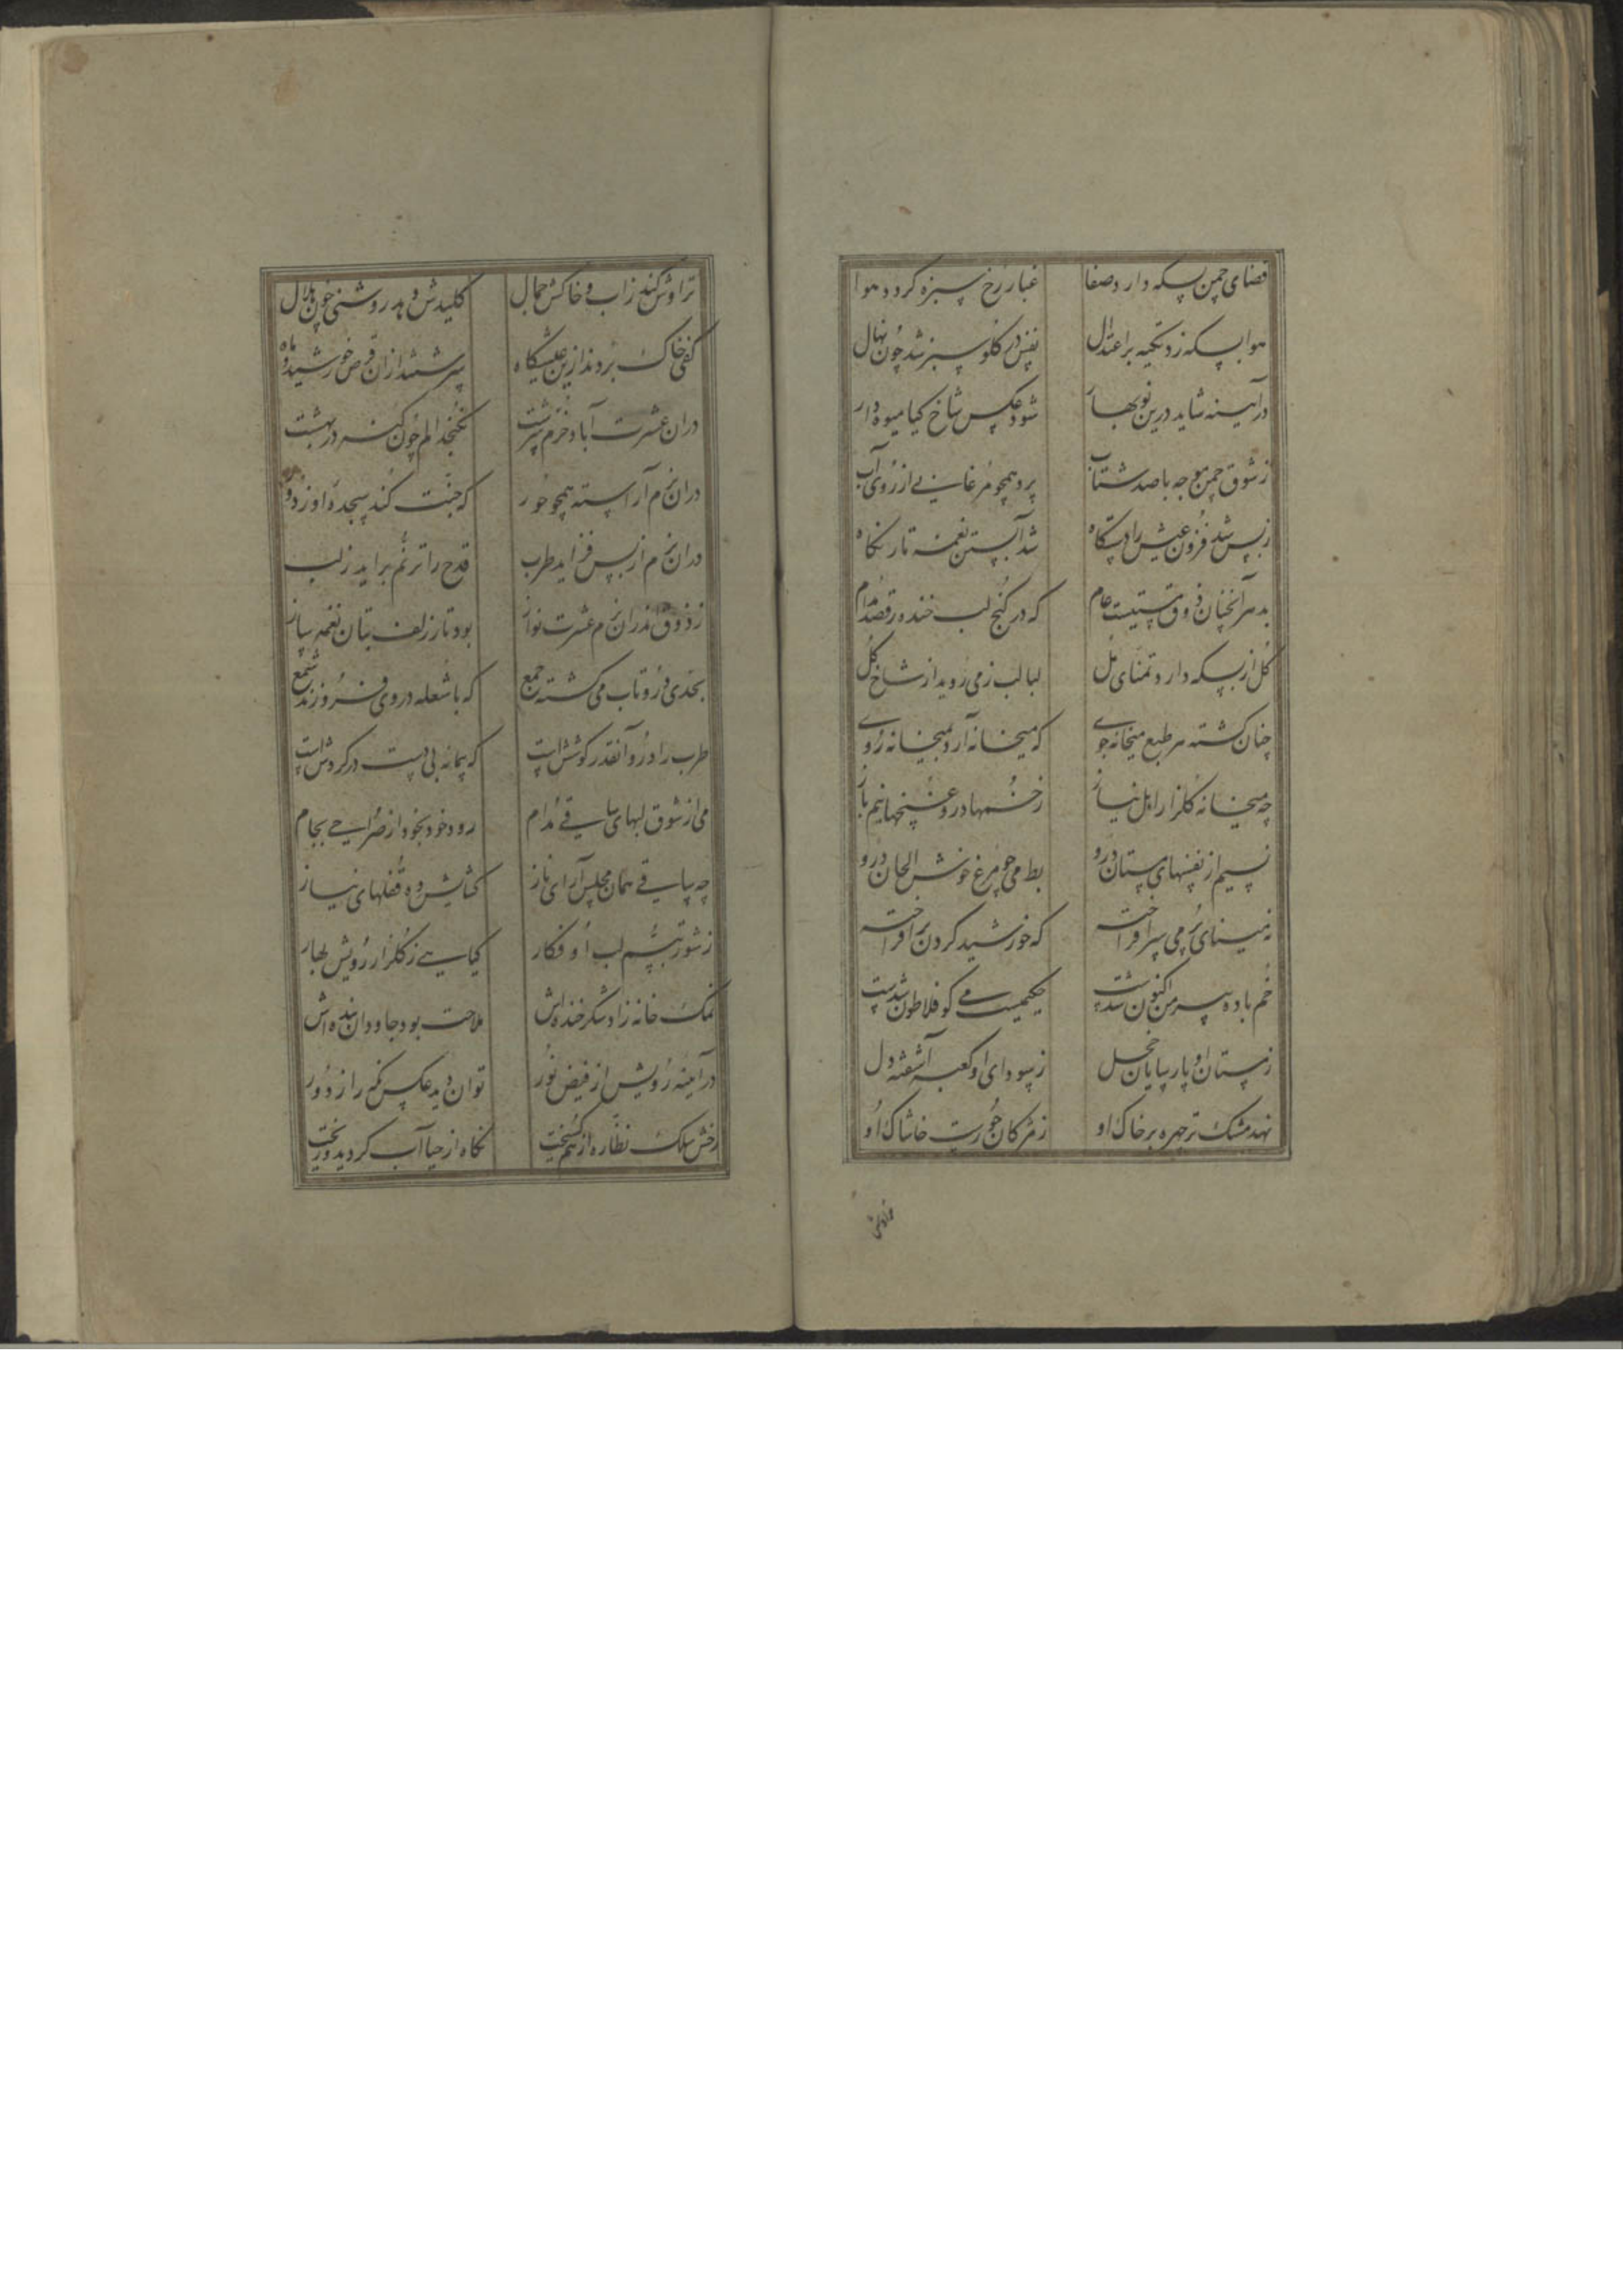 فضای چمن بسکه دارد صفا غبار رخ سبزه گردد هوا
هوا بسکه زد تکیه بر اعتدال نفس در گلو سبز شد چون نهال
در آیینه شاید درین نوبهار شود عکس شاخ گیا میوه دار
ز شوق چمن موجه با صد شتاب پرد همچو مرغابی از روی آب
ز بس شد فزون عیش را دستگاه شد آبستن نغمه تار نگاه
بدهر آنچنان ذوق مستیست عام که در کنج لب خنده رقصد مدام
گل از بسکه دارد تمنای مل لبالب ز می روید از شاخ گل
چنان گشته هر طبع میخانه جوی که میخانه آرد بمیخانه روی
چه میخانه گلزار اهل نیاز ز خمها درو غنچها نیم باز
نسیم از نفسهای مستان درو بط می چو مرغ خوش الحان درو
نه مینای پر می سر افراخته که خورشید گردن بر افراخته
خم باده پیر من اکنون شدست حکیمیست می کو فلاطون شدست
ز مستان او پارسایان خجل ز سودای او کعبه آشفته دل
نهد مشک تر چهره بر خاک او ز مژگان حورست خاشاک او
تراوش
تراوش کند ز آب و خاکش جمال کلیدش دهد روشنی چون هلال
کفی خاک بردند ازین عیشگاه سرشتند ازان قرص خورشید و ماه
دران عشرت آباد خرم سرشت نگنجد الم چون گنه در بهشت
دران بزم آراسته همچو حور که جنت کند سجده او ز دور
دران بزم از بس فزاید طرب قدح را ترنم برآید ز لب
ز ذوق اندران بزم عشرت نواز بود تار زلف بتان نغمه ساز
بحدی درو تاب می گشته جمع که با شعله در وی فروزند شمع
طرب را درو آنقدر کوشش است که پیمانه بی دست در گردش است
می از شوق لبهای ساقی مدام رود خود بخود از صراحی بجام
چه ساقی همان مجلس آرای ناز گشایش ده قفلهای نیاز
ز شور تبسم لب او فکار گیاهی ز گلزار رویش بهار
نمک خانه زاد شکر خنده اش ملاحت بود جاودان بنده اش
در آینه رویش از فیض نور توان دید عکس نگه را ز دور
رخش سلک نظاره از هم گسیخت نگاه از حیا آب گردید و ریخت